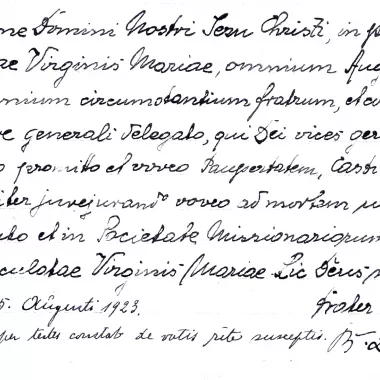 ne Domini Nostri Jesu Christi, in p
ae Virginis Mariae, omnium Ang
mnium circumstantium fratrum, et co
re generali delegato, qui Dei vices ger
o promitto et voveo Paupertatem, Casti
iter jurejurando voveo ad mortem u
uto et in Societate Missionariorum
culatae Virginis Mariae Sic Deus m
5. Augusti 1923. Frater
per testes constat de votis rite susceptis.